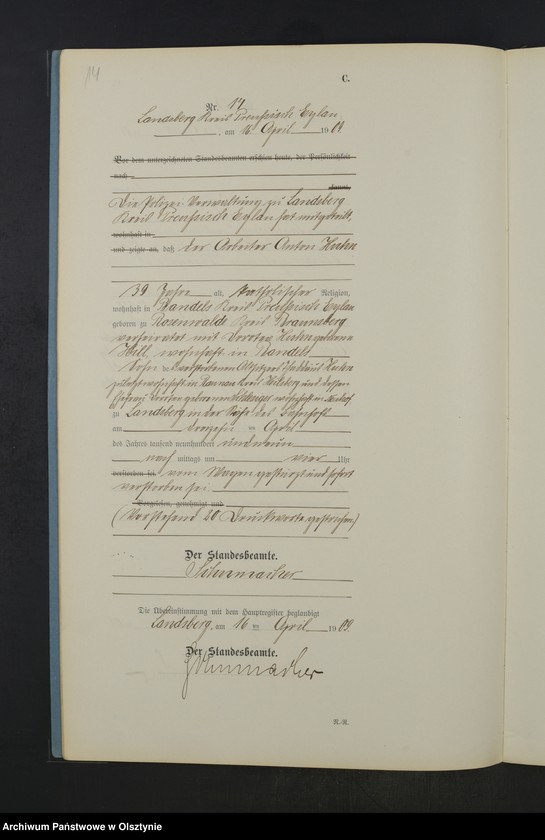 14
C.
Nr. 14.
Landsberg Kreis Preußisch Eylau,
, am 16. April 1909.
Vor dem unterzeichneten Standesbeamten erschien heute, der Persönlichkeit
nach
kannt,
Die Polizei Verwaltung zu Landsberg
Kreis Preußisch Eylau hat mitgeteilt,
wohnhaft in
und zeigte an, daß der Arbeiter Anton
39 Jahre alt, katholischer Religion,
wohnhaft in Bandels Kreis Preußisch Eylau
geboren zu Rosenwalde Kreis Braunsberg
verheiratet mit Dorothea geborene
Will, wohnhaft in Bandels
Sohn des verstorbenen Altsitzers
zuletzt wohnhaft in Kreis Heilsberg und dessen
Ehefrau geborenen wohnhaft in
zu Landsberg in der Nähe des Bahnhofs
am dreizehn ten April
des Jahres tausend neunhundert und neun
nach mittags um vier Uhr
verstorben sei. vom Wagen gestürzt und sofort
verstorben sei.
Vorgelesen, genehmigt und
(Vorstehend 20 Druckworte gestrichen)
Der Standesbeamte.
Schumacher
Die Übereinstimmung mit dem Hauptregister beglaubigt
Landsberg, am 16 ten April 1909.
Der Standesbeamte.
Schumacher
N.-R.
Archiwum Państwowe w Olsztynie